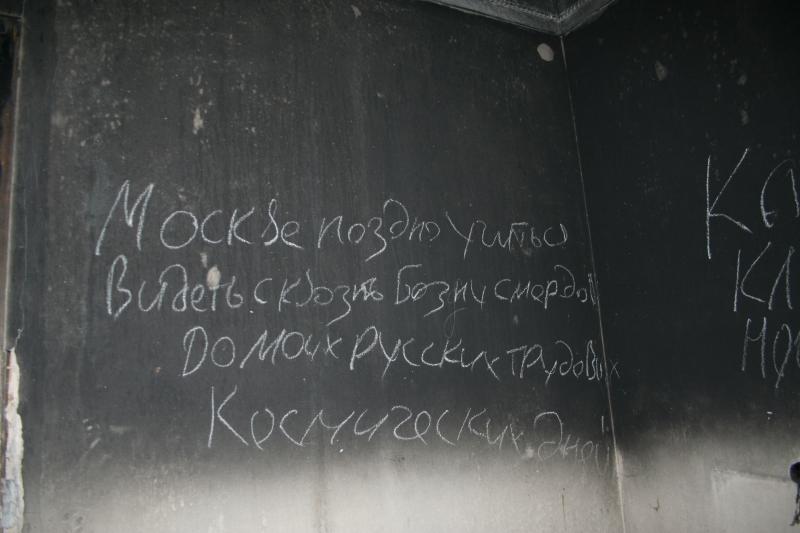 Москве поздно учиться
Видеть сквозь бозни смердой
Домоих русских трудовых
Космических дней
Ка
кл